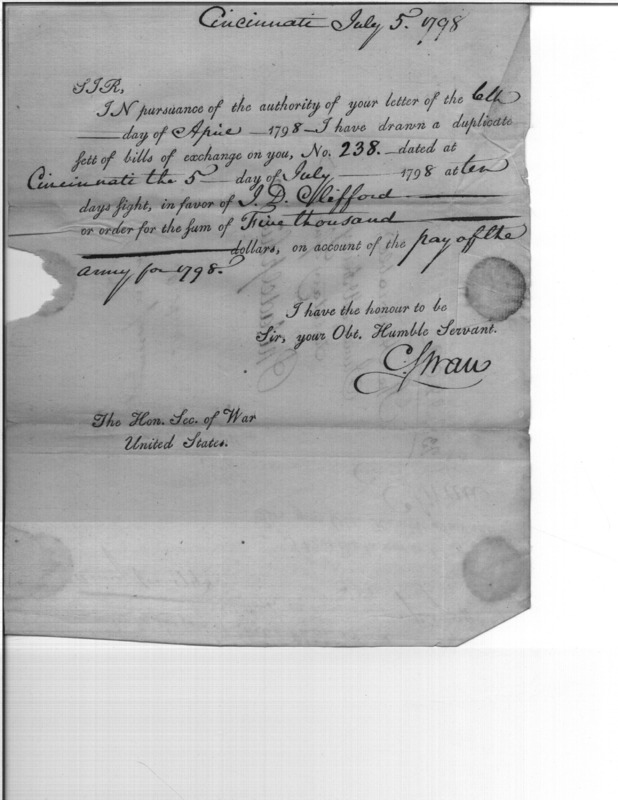 Cincinnati July 5. 1798
SIR,
IN pursuance of the authority of your letter of the 6th
day of April 1798 I have drawn a duplicate
sett of bills of exchange on you, No. 238. dated at
Cincinnati the 5 day of July 1798 at ten
days sight, in favor of J. D. Clifford
or order for the sum of Five thousand
dollars, on account of the pay of the
army for 1798.
I have the honour to be
Sir, your Obt. Humble Servant.
C. Swan
The Hon. Sec. of War
United States.